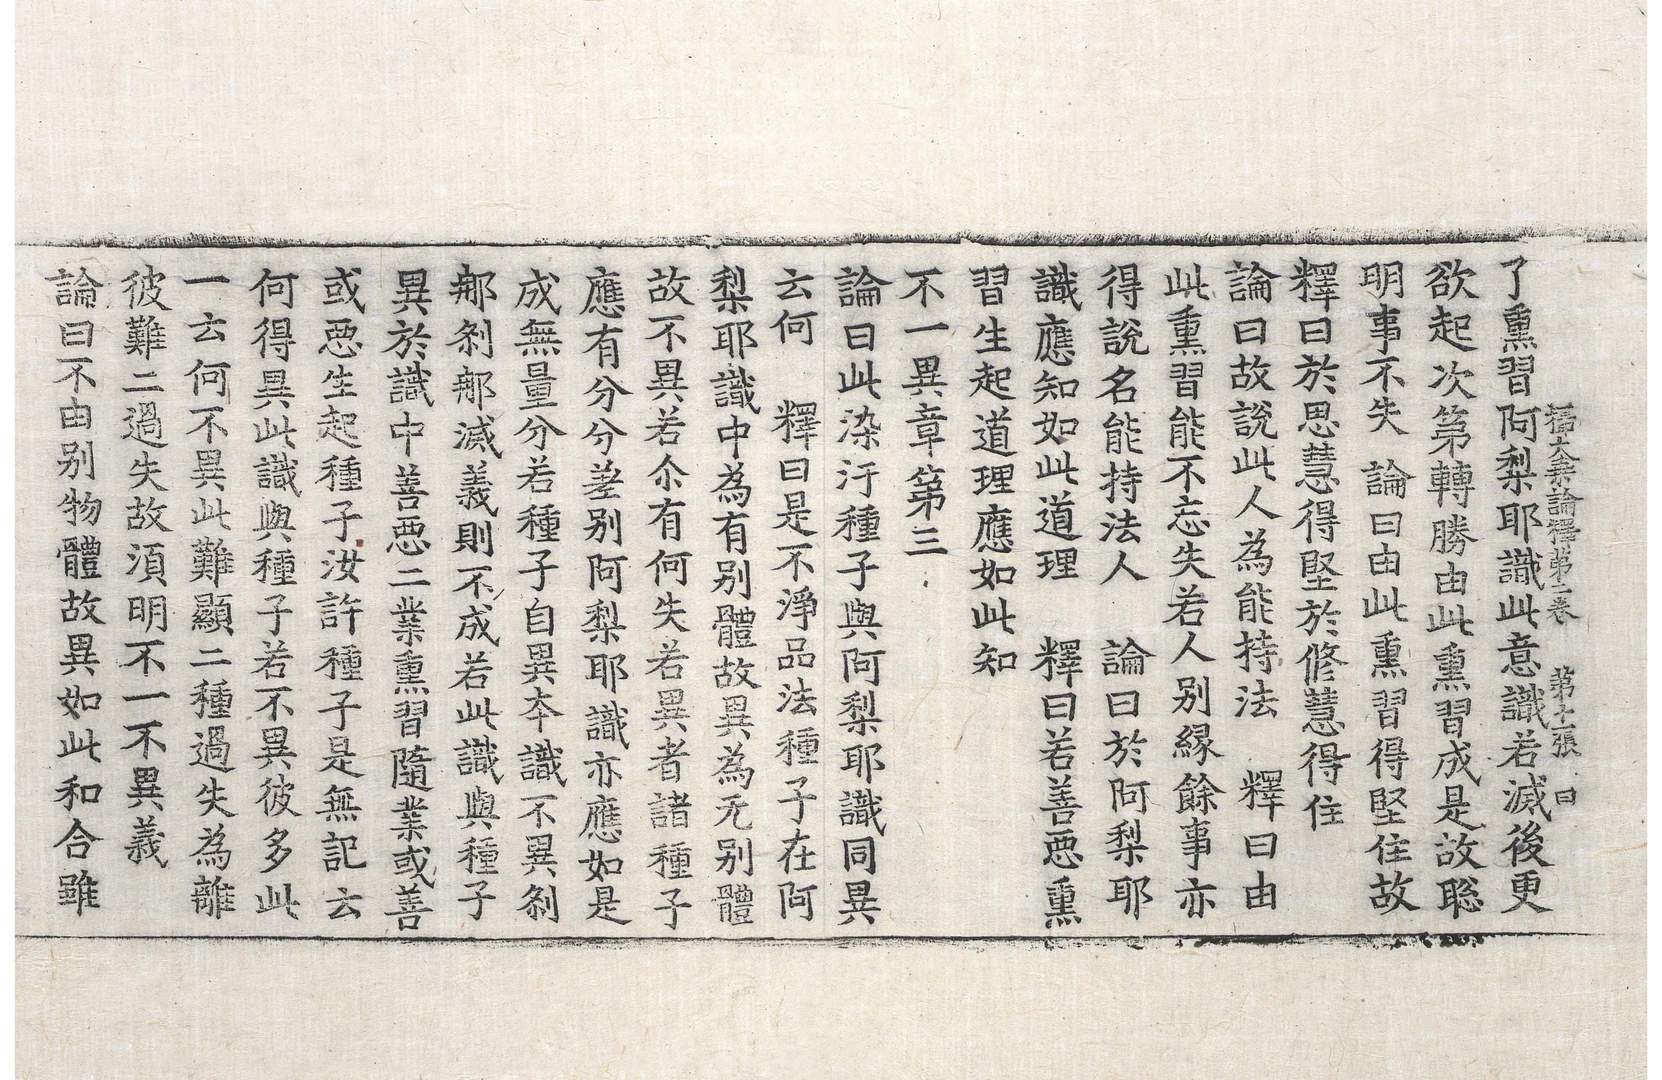 了熏習阿梨耶識此意識若滅後更
攝大乘論釋第二卷　第十二張　曰
欲起次第轉勝由此熏習成是故聡
明事不失　論曰由此熏習得堅住故
釋曰於思慧得堅於修慧得住
論曰故說此人為能持法　釋曰由
此熏習能不忘失若人別緣餘事亦
得說名能持法人　論曰於阿梨耶
識應知如此道理　釋曰若善惡熏
習生起道理應如此知
不一異章第三
論曰此染汙種子與阿梨耶識同異
云何　釋曰是不淨品法種子在阿
梨耶識中為有別體故異為无別體
故不異若尒有何失若異者諸種子
應有分分差別阿梨耶識亦應如是
成無量分若種子自異本識不異剎
那剎那滅義則不成若此識與種子
異於識中善惡二業熏習隨業或善
或惡生起種子汝許種子是無記云
何得異此識與種子若不異彼多此
一云何不異此難顯二種過失為離
彼難二過失故須明不一不異義
論曰不由別物體故異如此和合雖